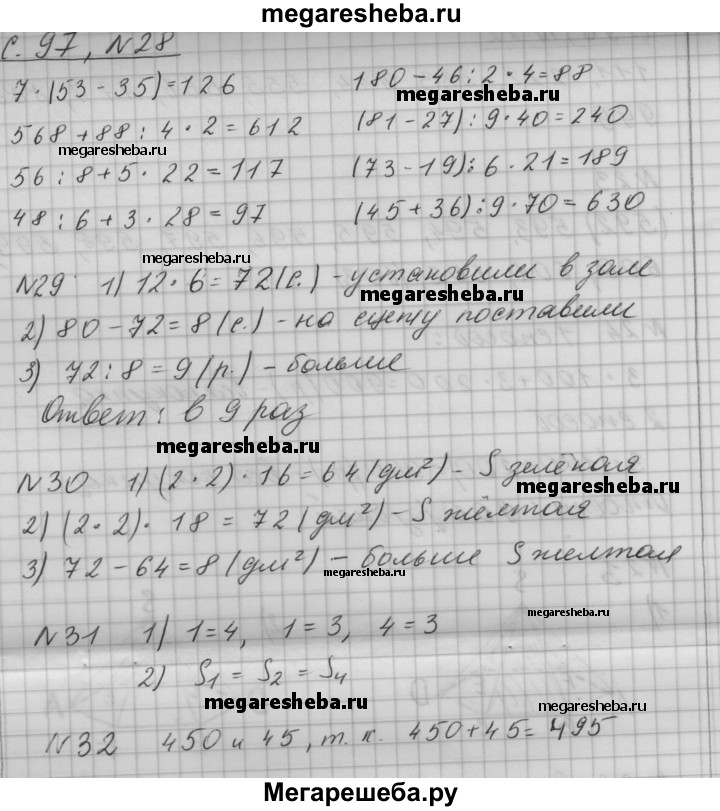 megaresheba.ru
С. 97, №28
7·(53-35)=126
180-46:2·4=88
megaresheba.ru
568+88:4·2=612
(81-27):9·40=240
megaresheba.ru
56:8+5·22=117
(73-19):6·21=189
48:6+3·28=97
(45+36):9·70=630
megaresheba.ru
№29 1) 12·6=72(с.) - установили в зале
megaresheba.ru
2) 80-72=8(с.) - на сцену поставили
3) 72:8=9(р.) - больше
Ответ: в 9 раз
megaresheba.ru
№30 1) (2·2)·16=64(дм²) - S зелёная
megaresheba.ru
2) (2·2)·18=72(дм²) - S жёлтая
3) 72-64=8(дм²) - больше S желтая
megaresheba.ru
megaresheba.ru
№31 1) 1=4, 1=3, 4=3
2) S₁=S₂=S₄
megaresheba.ru
megaresheba.ru
№32 450 и 45, т.к. 450+45=495
Мегарешеба.ру